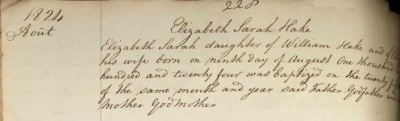 228
1824
Août
Elizabeth Sarah Hake
Elizabeth Sarah daughter of William Hake and
his wife born on ninth day of August one thousand
hundred and twenty four was baptized on the twenty
of the same month and year said Father Godfather and
Mother Godmother